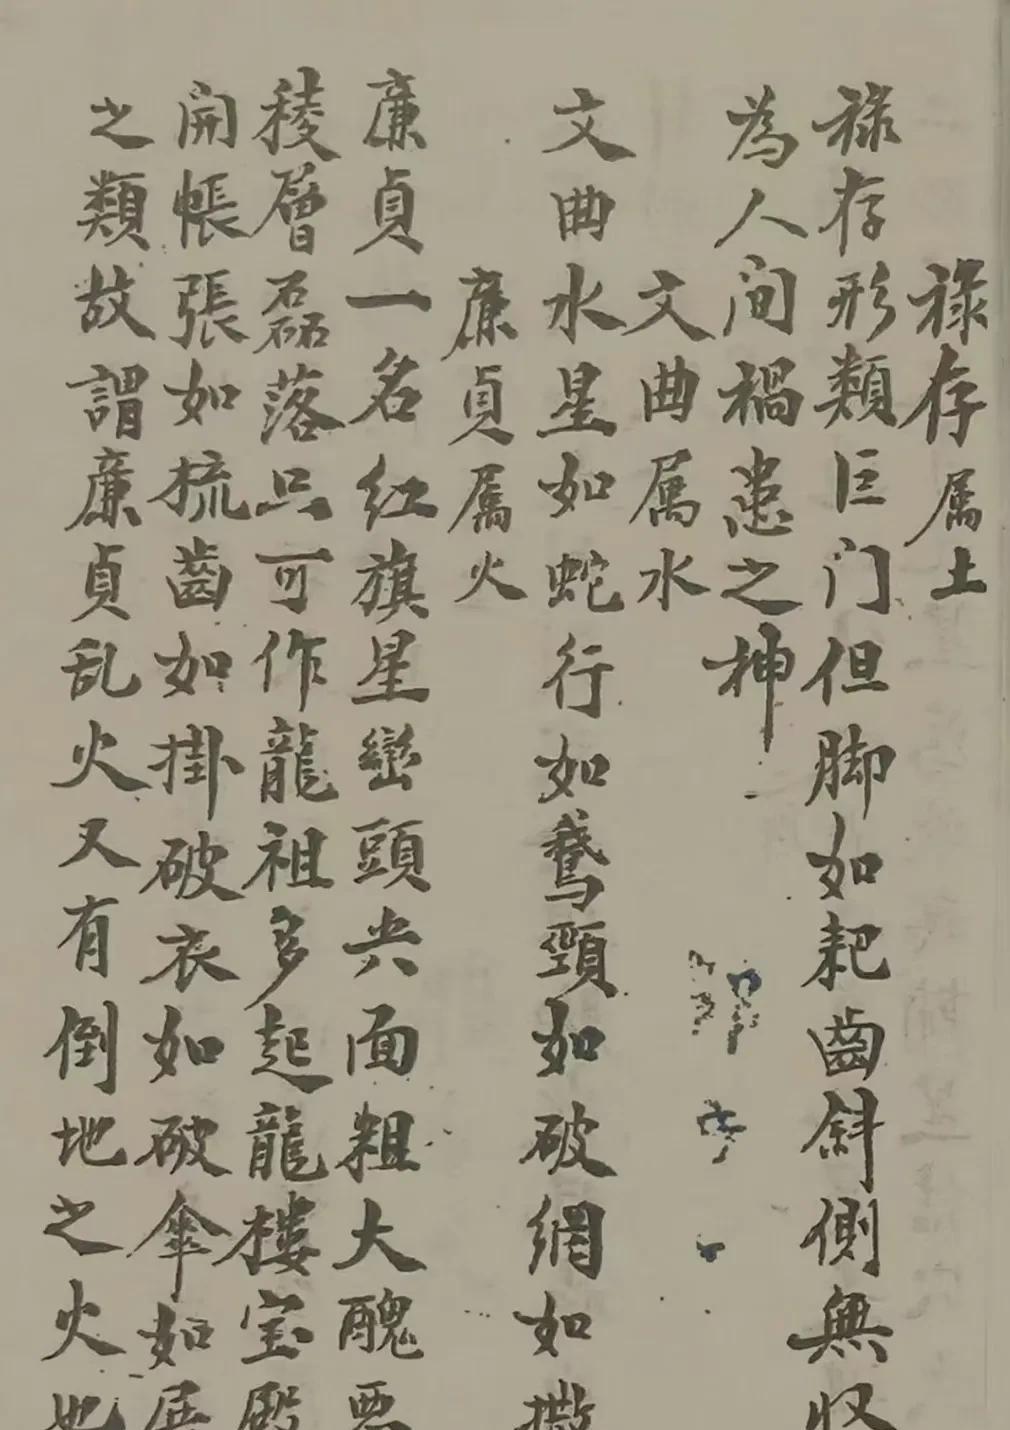 祿存属土
祿存形類巨门但脚如耙齒斜側無収
為人间禍患之神
文曲属水
文曲水星如蛇行如鵞頸如破網如撒
廉貞属火
廉貞一名红旗星巒頭尖面粗大醜恶
稜層磊落只可作龍祖多起龍楼宝殿
開帳張如梳齒如掛破衣如破傘如展
之類故謂廉貞乱火又有倒地之火也